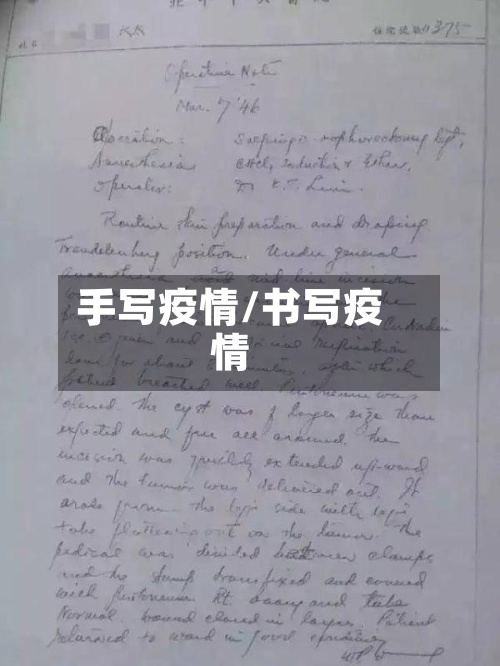 大太 住院號數 0375
姓名
Operative Note
Mar. 7 '46
Operation: Salpingo-oophorectomy left,
Anaesthesia CHCl3 Induction & Ether.
Operator: Dr. K.T. Lim.
Routine skin preparation and draping.
Trendelenburg position. Under general
anaesthesia mid line incision
手写疫情/书写疫
情
and respiration
for about which
patient breathed well. Peritoneum was
opened. The cyst was of larger size than
expected and free all around. The
incision was quickly extended upward
and the tumor was delivered out. It
arose from the left side with left
tube flattening out on the tumor. The
pedical was divided between clamps
and the stump transfixed and covered
with peritoneum. Rt. ovary and tube
Normal. Wound closed in layers. Patient
returned to ward in good condition